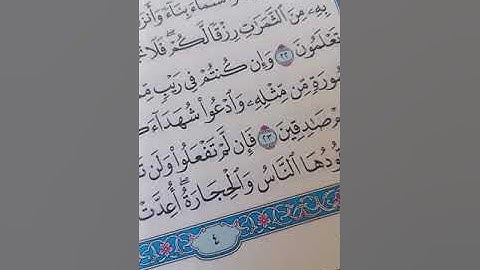 سَّمَآءَ بِنَآءً وَأَنزَ
بِهِۦ مِنَ ٱلثَّمَرَٰتِ رِزْقًا لَّكُمْ ۖ فَلَا
تَعْلَمُونَ ٢٢ وَإِن كُنتُمْ فِى رَيْبٍ مِّ
سُورَةٍ مِّن مِّثْلِهِۦ وَٱدْعُوا۟ شُهَدَآءَكُ
مْ صَٰدِقِينَ ٢٣ فَإِن لَّمْ تَفْعَلُوا۟ وَلَن تَ
قُودُهَا ٱلنَّاسُ وَٱلْحِجَارَةُ ۖ أُعِدَّتْ
٤